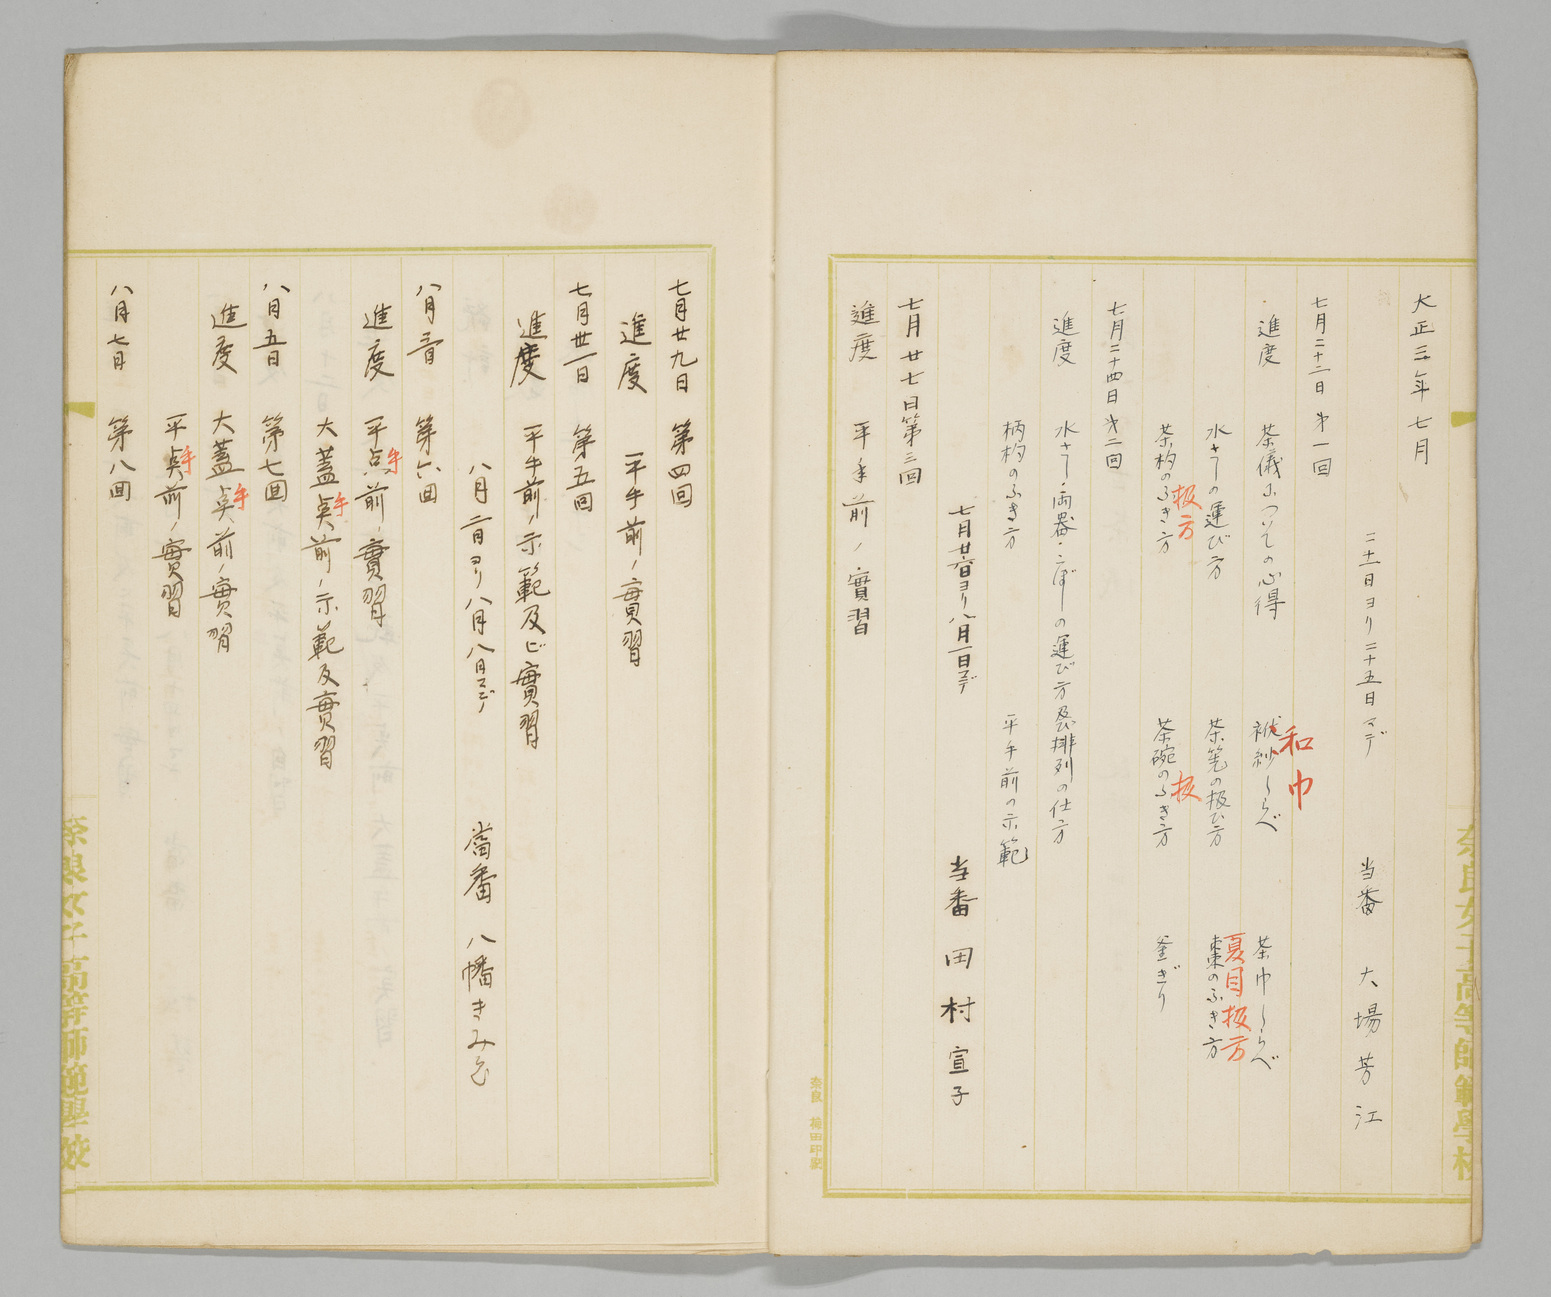 大正三年七月
二十二日ヨリ二十五日マデ 当番 大場芳江
七月二十二日 才一回
進度 茶儀についての心得 袱紗しらべ 茶巾しらべ
和巾
水さしの運び方 茶筅の扱ひ方 棗のふき方
夏目扱方
茶杓のふき方 茶碗のふき方 釜ぎり
扱方 扱
七月二十四日 才二回
進度 水さし・両器・こぼしの運び方及ビ排列の仕方
柄杓のふき方 平手前の示範
七月廿六日ヨリ八月一日マデ 当番 田村宣子
七月廿七日第三回
進度 平手前ノ實習
奈良女子高等師範學校
奈良 梅田印刷
七月廿九日 第四回
進度 平手前ノ實習
七月廿一日 第五回
進度 平手前ノ示範及ビ實習
八月二日ヨリ八月八日マデ 當番 八幡きみ
八月三日 第六回
進度 平点前ノ實習
手
大蓋点前ノ示範及實習
手
八月五日 第七回
進度 大蓋点前ノ實習
手
平点前ノ實習
手
八月七日 第八回
奈良女子高等師範學校